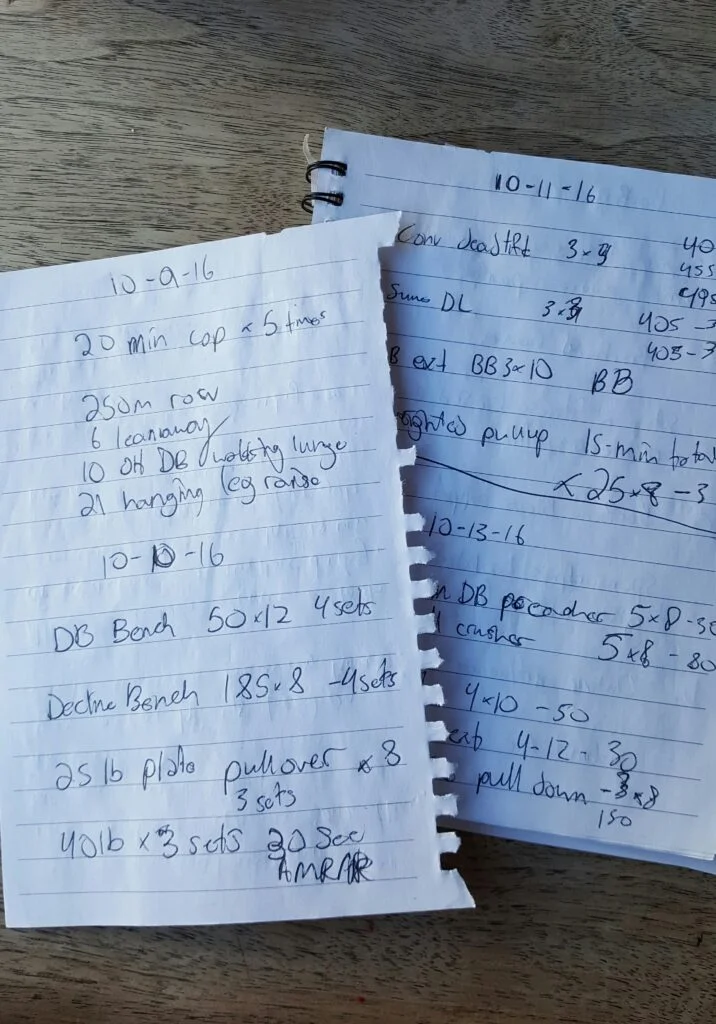 10-9-16
20 min cap x 5 times
250m row
6 leanaway
10 OH DB walking lunge
21 hanging leg raise
10-10-16
DB Bench 50x12 4 sets
Decline Bench 185x8 -4 sets
25 lb plate pullover x 8
3 sets
40lb x 3 sets 30 Sec
AMRAP
10-11-16
Conv deadlift 3x 40
455
495
Sumo DL 3x3 405 -3
405-3
ext BB 3x10 BB
pullup 15-min total
x 25x8 -3
10-13-16
DB 5x8 -50
crusher 5x8 - 80
4x10 -50
ext 4-12 - 30
pull down -3x8
150